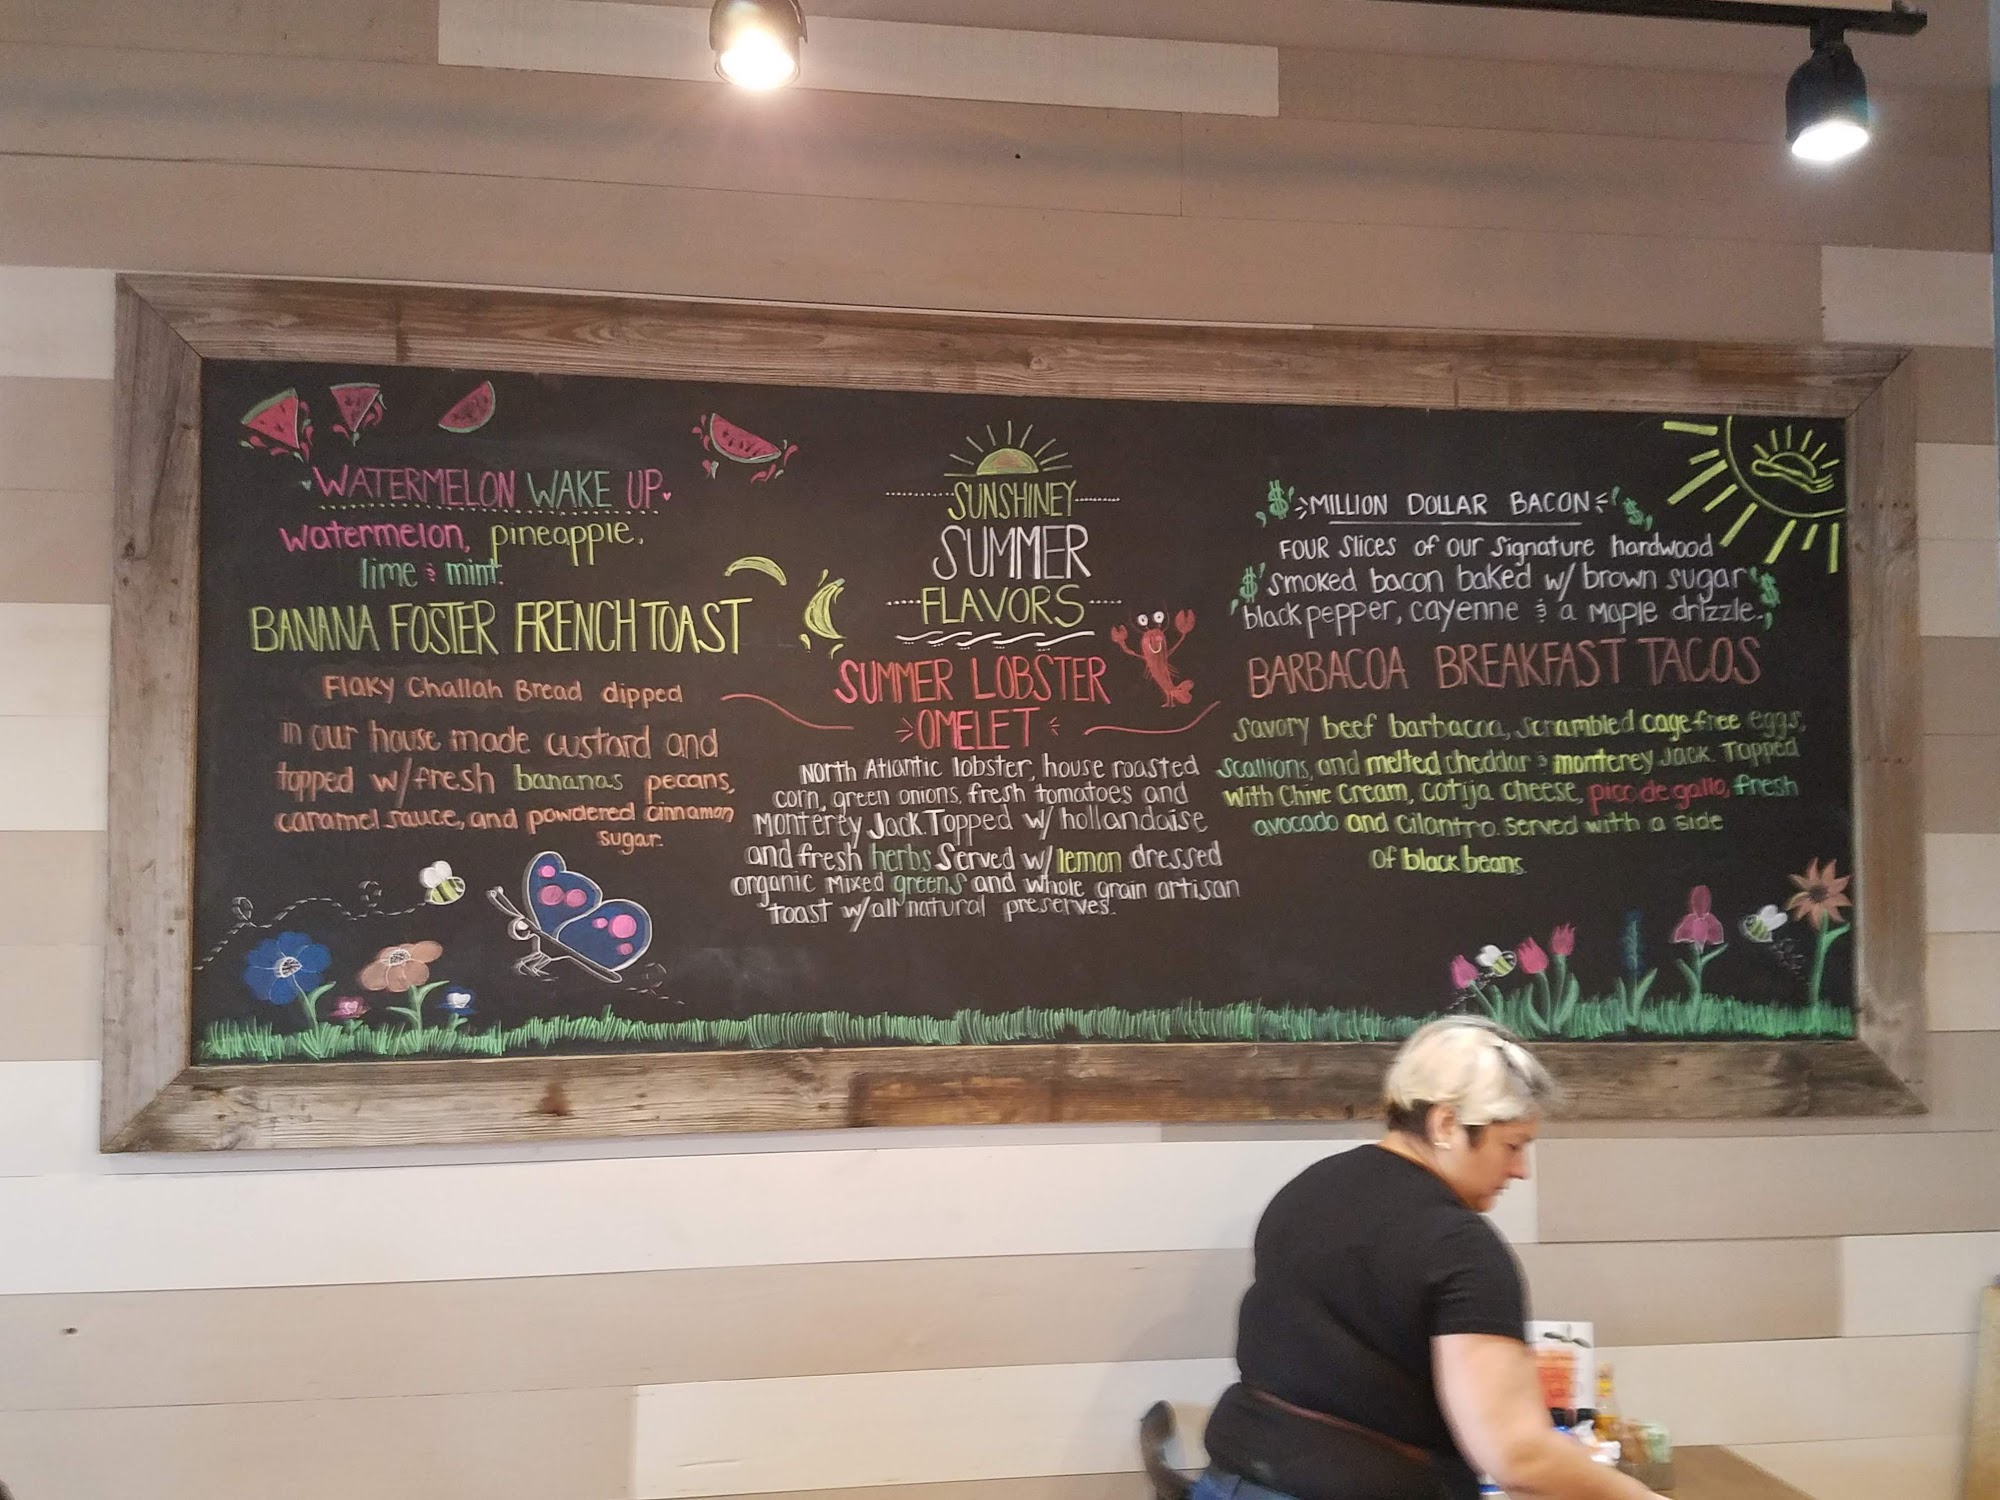 WATERMELON WAKE UP
watermelon, pineapple,
lime & mint.
BANANA FOSTER FRENCH TOAST
Flaky Challah Bread dipped
in our house made custard and
topped w/fresh bananas pecans,
caramel sauce, and powdered cinnamon
sugar.
SUNSHINEY
SUMMER
FLAVORS
SUMMER LOBSTER
OMELET
North Atlantic lobster, house roasted
corn, green onions, fresh tomatoes and
Monterey Jack. Topped w/ hollandaise
and fresh herbs Served w/ lemon dressed
organic mixed greens and whole grain artisan
toast w/all natural preserves.
$ MILLION DOLLAR BACON $
FOUR slices of our signature hardwood
$ smoked bacon baked w/ brown sugar $
black pepper, cayenne & a maple drizzle.
BARBACOA BREAKFAST TACOS
savory beef barbacoa, scrambled cage free eggs,
scallions, and melted cheddar & monterey Jack. Topped
with Chive Cream, cotija cheese, pico de gallo, fresh
avocado and cilantro. served with a side
of black beans.